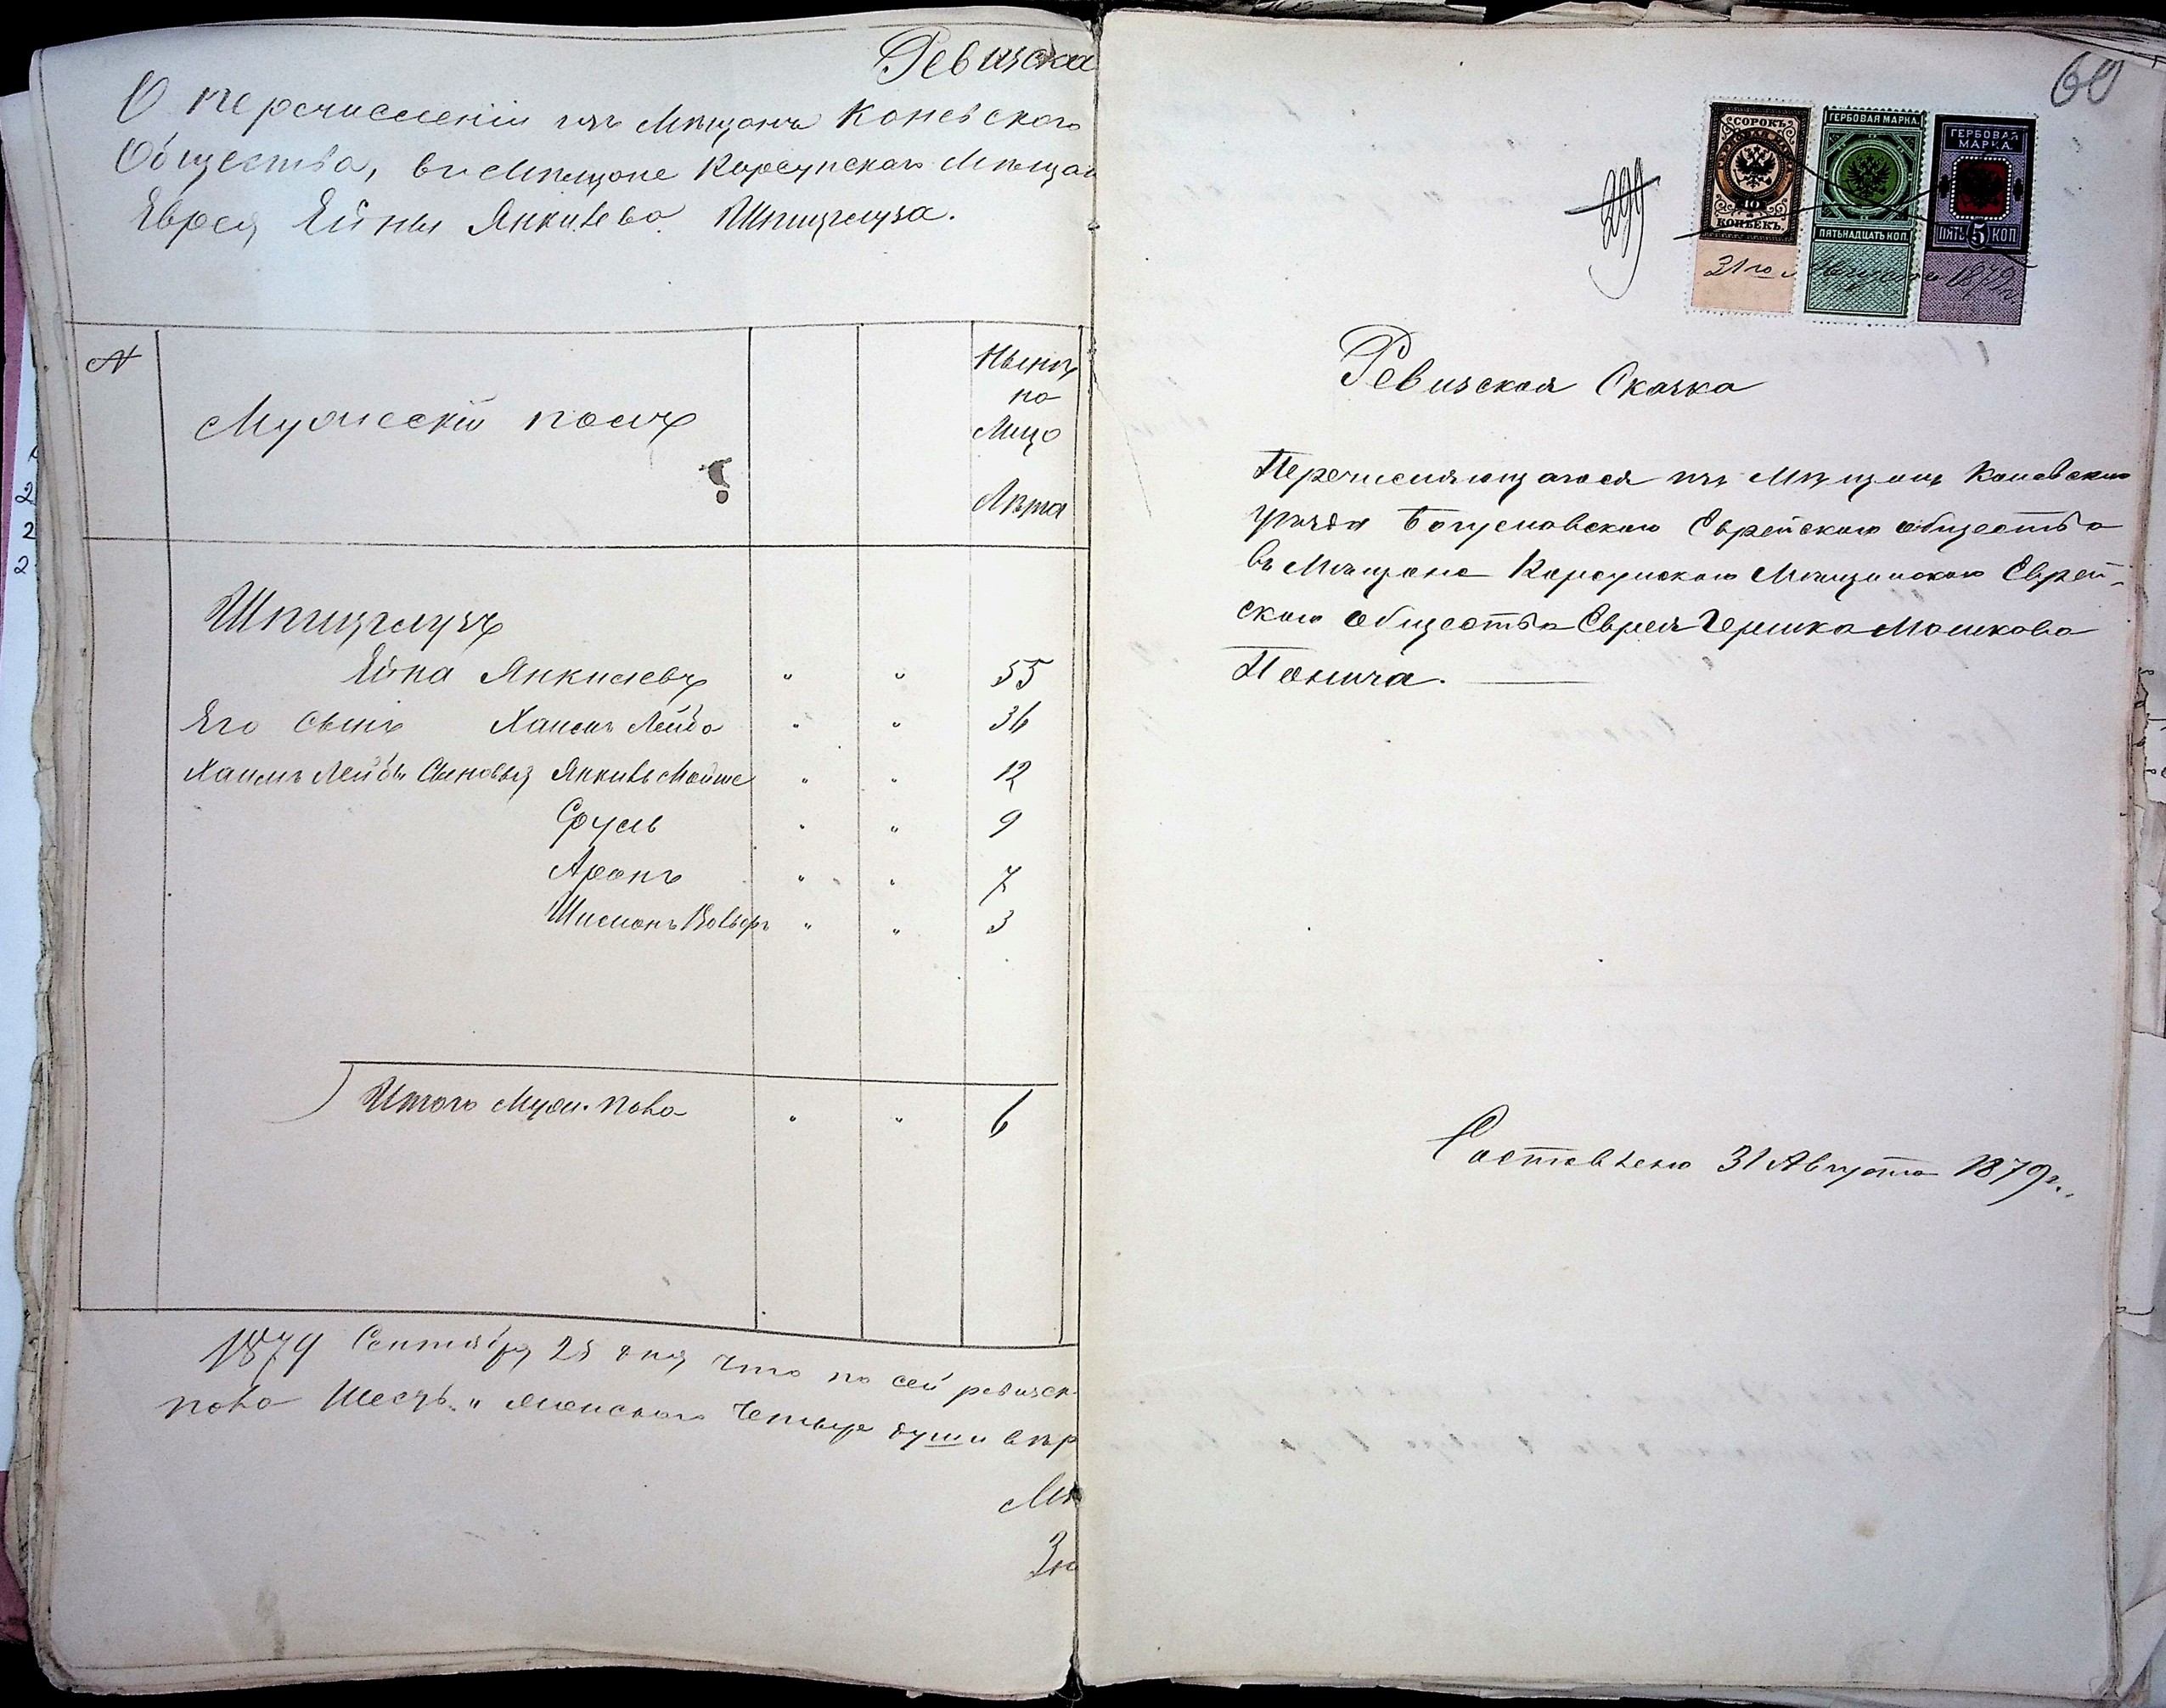 Ревизска
О перечислении изъ Мѣщанъ Каневского
Общества, въ Мѣщане Корсунскаго Мѣщан
Еврея Ейны Янкилева Шпицглуза.
№
Мужескій полъ
Нынѣ
на
Лицо
Лѣта
Шпицглузъ
Ейна Янкилевъ " " 55
Его Сынъ Хаимъ Лейба " " 36
Хаимъ Лейбы Сыновья Янкивь Мойше " " 12
Сруль " " 9
Аронъ " " 7
Шимонъ Вольфъ " " 3
Итого Муж. пола " " 6
1879 Сентября 25 дня что по сей ревизск
пола Шесть " женскаго Четыре души вѣр
Мѣ
60
299
СОРОКЪ
40
КОПѢЕКЪ.
ГЕРБОВАЯ МАРКА.
ПЯТЬНАДЦАТЬ КОП.
ГЕРБОВАЯ
МАРКА.
ПЯТЬ 5 КОП
31го Августа 1879 г.
Ревизская Сказка
Перечисляющагося изъ Мѣщанъ Каневскаго
уѣзда Богуславскаго Еврейскаго общества
въ Мѣщане Корсунскаго Мѣщанскаго Еврей-
скаго общества Еврея Гершка Мошкова
Составлено 31 Августа 1879 г.